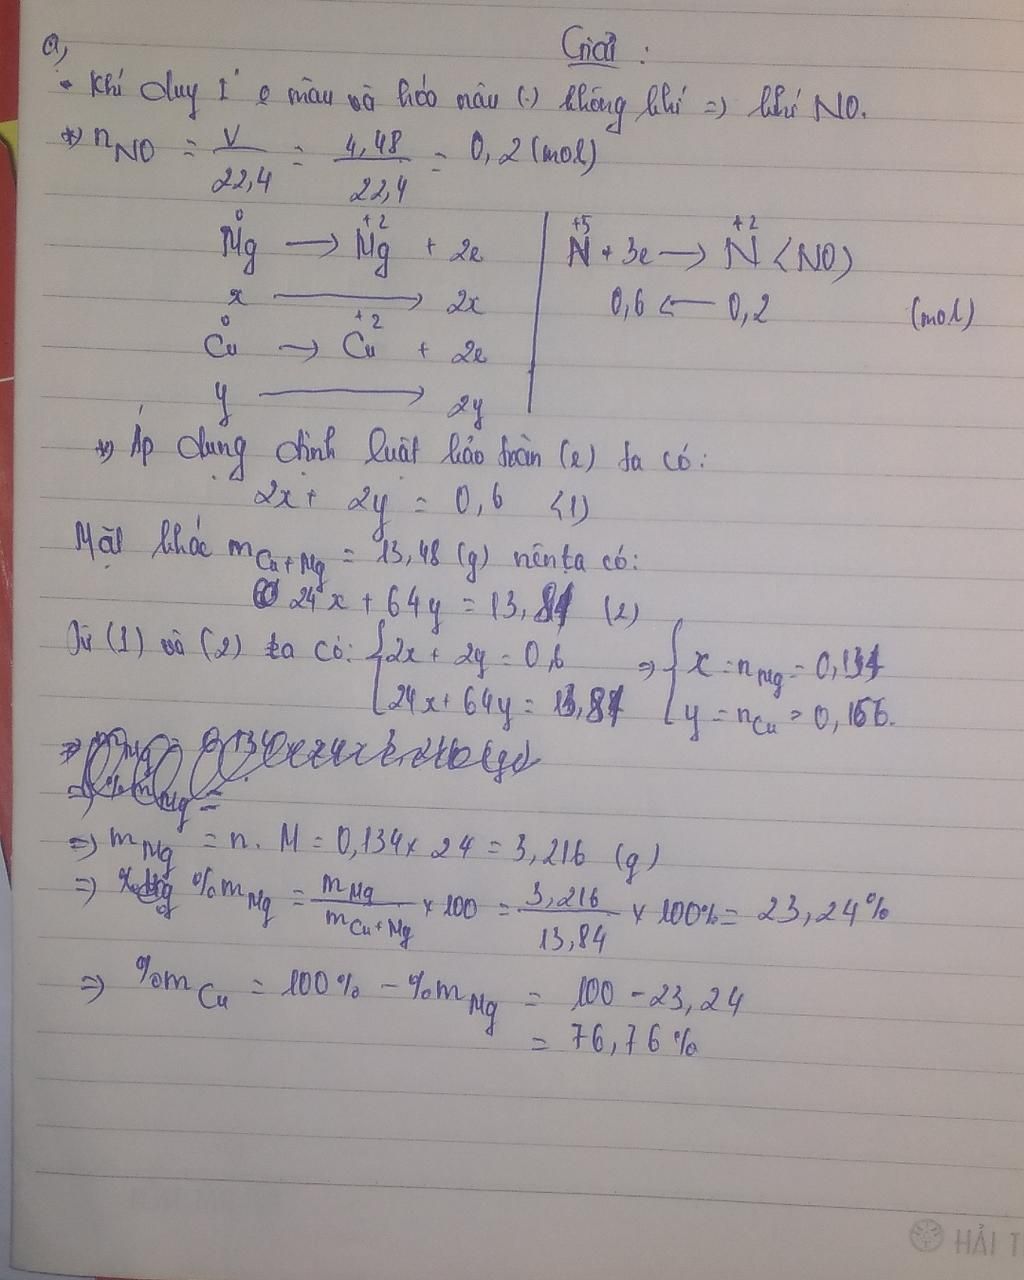 Giải :
a,
• Khí duy 1 o màu và hóa nâu (.) không khí => khí NO.
*) nNO = V/22,4 = 4,48/22,4 = 0,2 (mol)
0 +2 +5 +2
Mg → Mg + 2e | N + 3e → N (NO)
x → 2x 0,6 ← 0,2 (mol)
0 +2
Cu → Cu + 2e
y → 2y
*) Áp dụng định luật bảo toàn (e) ta có:
2x + 2y = 0,6 (1)
Mặt khác mCu+Mg = 13,48 (g) nên ta có:
24x + 64y = 13,84 (2)
Từ (1) và (2) ta có: { 2x + 2y = 0,6 => { x = nMg = 0,134
24x + 64y = 13,84 y = nCu = 0,166.
=> %mMg =
=> mMg = n. M = 0,134 x 24 = 3,216 (g)
=> %mMg = mMg/mCu+Mg x 100 = 3,216/13,84 x 100% = 23,24%
=> %mCu = 100% - %mMg = 100 - 23,24
= 76,76%
HẢI T